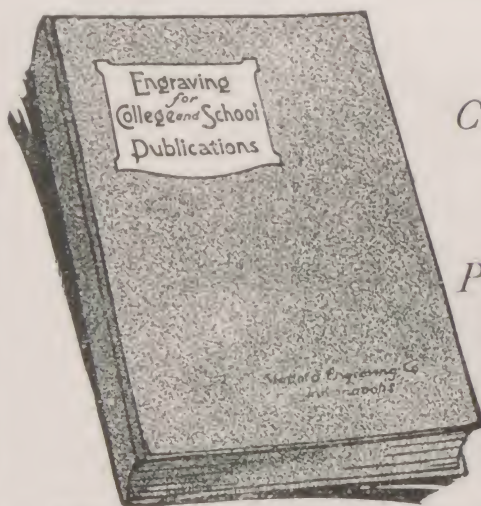 Engraving
for
College and School
Publications
C
P
Engraving Co
Indianapolis